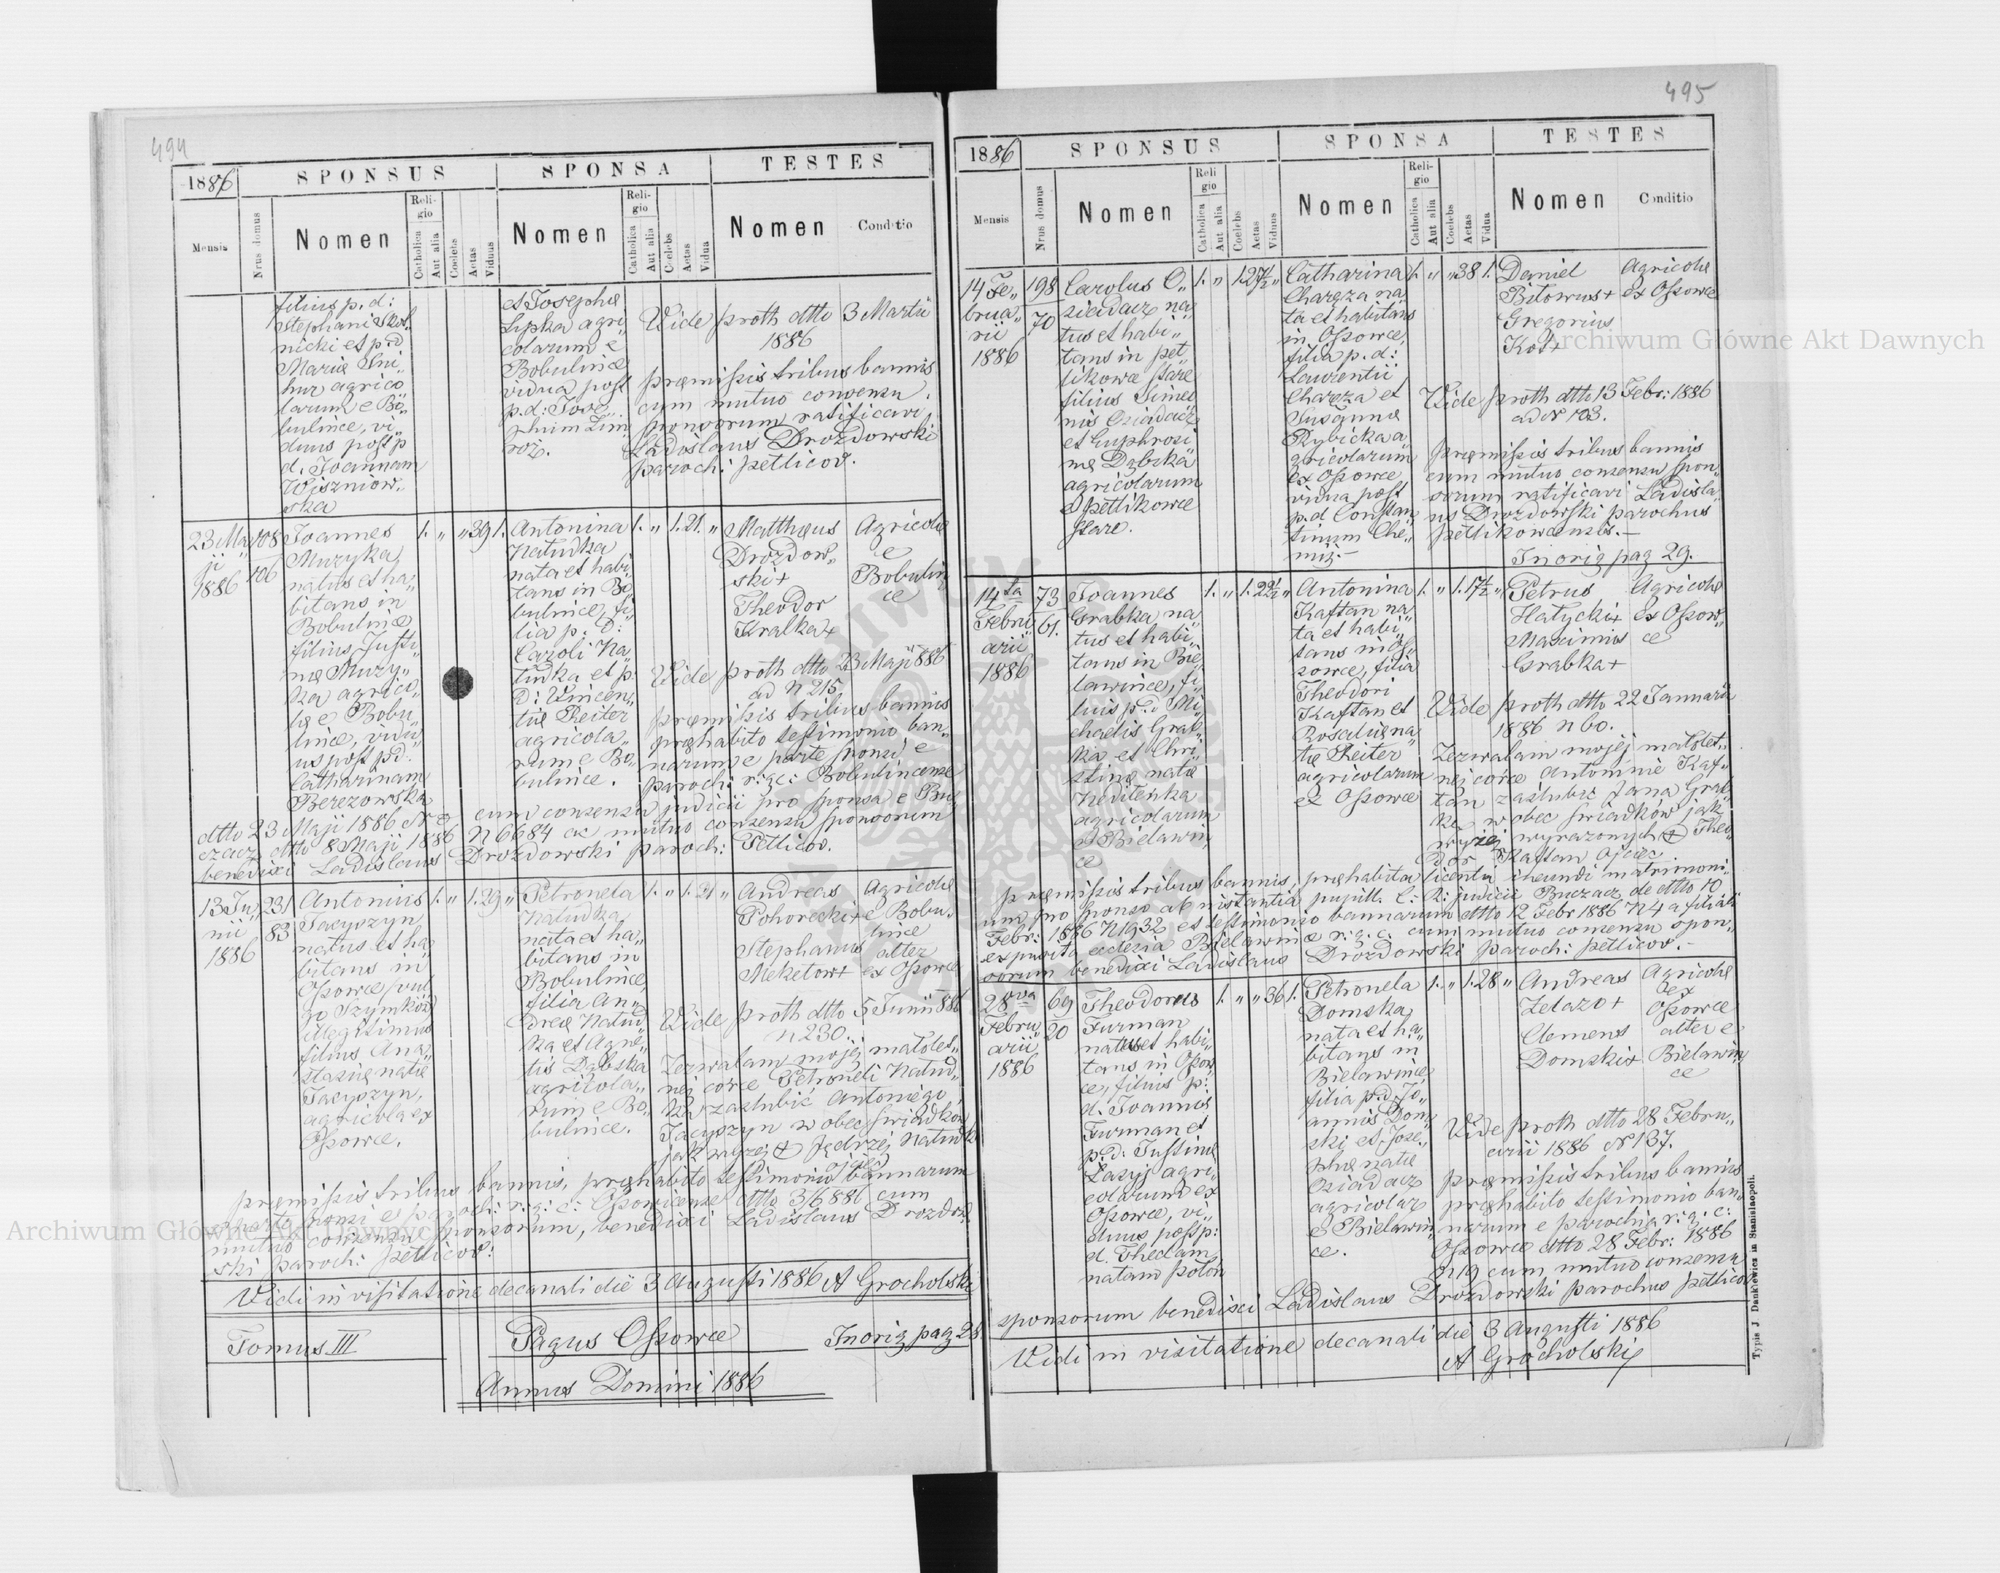 494
1886
SPONSUS
SPONSA
TESTES
Mensis
Nrus domus
Nomen
Religio
Catholica
Aut alia
Coelebs
Aetas
Viduus
Nomen
Religio
Catholica
Aut alia
Coelebs
Aetas
Vidua
Nomen
Conditio
filius p. d:
Stephani Skol„
nicki et p. d
Mariæ Sni„
hur agrico
larum e Bo„
bulince, vi„
duus post p
d. Joannam
Wiszniow„
ska
et Josephæ
Lipka agri„
colarum e
Bobulince
vidua post
p. d: Jose„
phum Zim
roz.
Vide proth dtto 3 Martii
1886
præmissis tribus bannis
cum mutuo consensu
sponsorum ratificavi
Ladislaus Drozdowski
Paroch: Petlicov.
23 Ma„
ji
1886
108
106
Joannes
Muzyka
natus et ha„
bitans in
Bobulince
filius Justi„
næ Muzy„
ka agrico„
læ e Bobu„
lince, vidu„
us post p. d.
Catharinam
Berezowska
1. „ „ 39 1.
Antonina
Natudka
nata et habi„
tans in Bo„
bulince, fi„
lia p. d:
Caroli Na„
tudka et p.
d: Vincen„
tiæ Reiter
agricola„
rum e Bo„
bulince.
1. „ 1. 21. „
Matthæus
Drozdow„
ski +
Theodor
Kralka +
Agricolæ
e
Bobulin
ce
Vide proth dtto 23 Maji 886
ad N 215.
præmissis tribus bannis
præhabito testimonio ban„
narum e parte sponsi e
paroch: r: g: c: Bobulincense
dtto 23 Maji 1886
cum consensu judicii pro sponsa e Bu„
czacz dtto 8 Maji 1886 N 6684 ac mutuo consensu sponsorum
benedixi Ladislaus Drozdowski paroch: Petlicov.
13 Ju„
nii
1886
231
83
Antonius
Jacyszyn
natus et ha„
bitans in
Ossowce, vul
go Szymków
illegitimus
filius Ana„
stasiæ natæ
Jacyszyn,
agricola ex
Ossowce.
1. „ 1. 29 „
Petronela
Natudka
nata et ha„
bitans in
Bobulince,
filia An„
dreæ Natud„
ka et Agne„
tis Dąbska
agricola„
rum e Bo„
bulince.
1. „ 1. 21 „
Andreas
Pohorecki +
Stephanus
Meketow +
Agricolæ
e Bobu„
lince
alter
ex Ossowce
Vide proth dtto 5 Junii 886
n 230.
Zezwalam mojej małolet„
niej corce Petroneli Natud„
ka zaslubić Antoniego
Jacyszyn w obec świadków
jak wyżej + Jędrzej Natudk
ojciec
præmissis tribus bannis, præhabito testimonio bannarum
ex parte sponsi e paroch: r: g: c: Ossowicense dtto 3/6 886 cum
mutuo consensu sponsorum, benedixi Ladislaus Drozdow„
ski paroch: Petlicov:
Vidi in visitatione decanali die 3 Augusti 1886 A Grocholski
Tomus III
Pagus Ossowce
In orig pag 28
Annus Domini 1886
495
1886
SPONSUS
SPONSA
TESTES
Mensis
Nrus domus
Nomen
Religio
Catholica
Aut alia
Coelebs
Aetas
Viduus
Nomen
Religio
Catholica
Aut alia
Coelebs
Aetas
Vidua
Nomen
Conditio
14 Fe„
brua„
rii
1886
198
70
Carolus O„
ziadacz na„
tus et habi„
tans in Pet„
likowce stare
filius Simeo
nis Oziadacz
et Euphrosi
næ Dąbska
agricolarum
e Petlikowce
stare.
1. „ 1. 27½ „
Catharina
Charęza na„
ta et habitans
in Ossowce,
filia p. d:
Laurentii
Charęza et
Susannæ
Rybicka a„
gricolarum
ex Ossowce
vidua post
p. d Constan„
tinum Che„
miz.—
1. „ „ 38 1.
Daniel
Bitowus +
Gregorius
Kot +
Agricolæ
ex Ossowce
Vide proth dtto 13 Febr: 1886
ad N 103.
præmissis tribus bannis
cum mutuo consensu spon„
sorum ratificavi Ladisla„
us Drozdowski Parochus
Petlikowcensis.—
In orig pag 29.
14ta
Febru„
arii
1886
73
61.
Joannes
Grabka na„
tus et habi„
tans in Bie„
lawince, fi„
lius p. d. Mi„
chaelis Grab„
ka et Chri„
stinæ natæ
Neditenka
agricolarum
e Bielawin„
ce
1. „ 1. 22½ „
Antonina
Kaftan na„
ta et habi„
tans in Os„
sowce, filia
Theodori
Kaftan et
Rosaliæ na„
tæ Reiter
agricolarum
ex Ossowce
1. „ 1. 17½ „
Petrus
Hatycki +
Maximus
Grabka +
Agricolæ
ex Ossow„
ce
Vide proth dtto 22 Januarii
1886 n 60.
Zezwalam mojej małolet„
niej córce Antoninie Kaf„
tan zaslubić Jana Grab„
kę w obec świadków jak
wyżej wyrażonych + Theo„
dor Kaftan ojciec
præmissis tribus bannis, præhabita licentia ineundi matrimoni„
um pro sponso ab instantia pupill. C: R: judicii Buczacz de dtto 10
Febr: 1886 N 1932, et testimonio bannarum dtto 12 Febr 1886 N 4 a filiali
exposita ecclesia Bielawince r. g. c. cum mutuo consensu spon„
sorum benedixi Ladislaus Drozdowski paroch: Petlicov.—
28va
Febru„
arii
1886
69
20
Theodorus
Furman
natus et habi„
tans in Ossow„
ce, filius p:
d. Joannis
Furman et
p. d: Justinæ
Lazyj agri„
colarum ex
Ossowce, vi„
duus post p:
d. Theclam
natam Poton
1. „ „ 36 1.
Petronela
Domska
nata et ha„
bitans in
Bielawince
filia p. d. Jo„
annis Dom„
ski et Jose„
phæ natæ
Oziadacz
agricolar
e Bielawin„
ce.
1. „ 1. 28 „
Andreas
Zelazo +
Clemens
Domski +
Agricolæ
ex
Ossowce
alter e
Bielawin„
ce
Vide proth dtto 28 Febru„
arii 1886 N 137.
præmissis tribus bannis
præhabito testimonio ban„
narum e parochia r. g. c:
Ossowce dtto 28 Febr: 1886
N 19 cum mutuo consensu
sponsorum benedixi Ladislaus Drozdowski parochus Petlicov
Vidi in visitatione decanali die 3 Augusti 1886
A Grocholski
Typis J. Dankiewicz in Stanislaopoli.
Archiwum Główne Akt Dawnych
Archiwum Główne Akt Dawnych